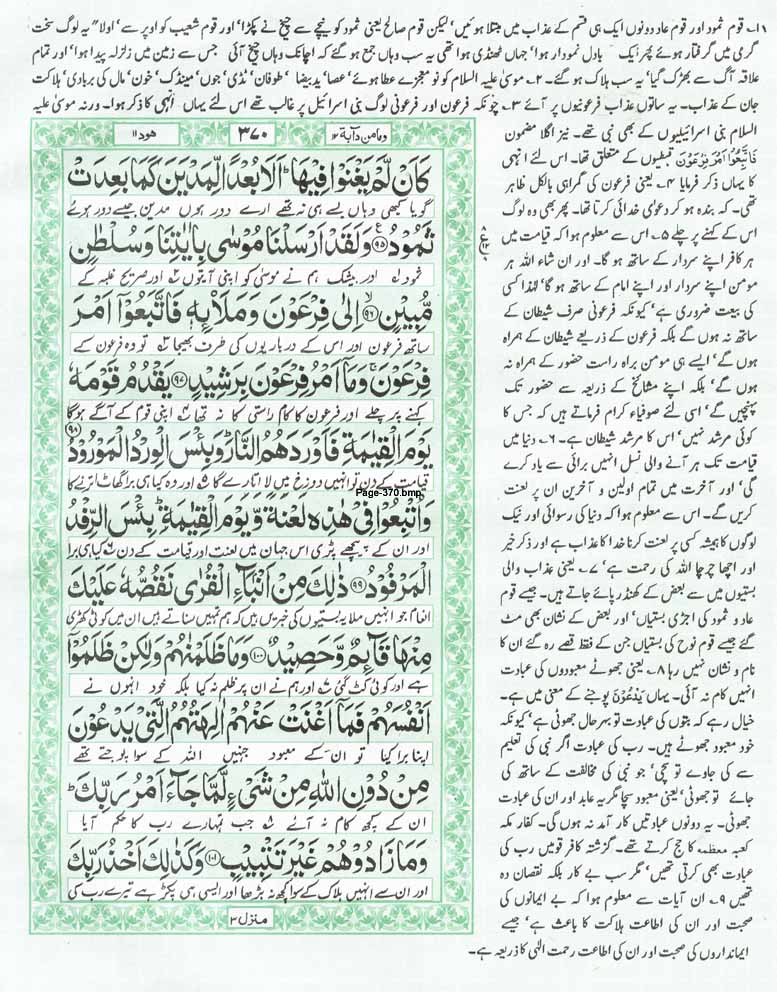 ۱۱۔ قوم ثمود اور قوم عاد دونوں ایک ہی قسم کے عذاب میں مبتلا ہوئیں، لیکن قوم صالح یعنی ثمود کو نیچے سے چیخ نے پکڑا، اور قوم شعیب کو اوپر سے، اولا" یہ لوگ سخت
گرمی میں گرفتار ہوئے پھر ایک بادل نمودار ہوا، جہاں ٹھنڈی ہوا تھی یہ سب وہاں جمع ہو گئے کہ اچانک وہاں چیخ آئی جس سے زمین میں زلزلہ پیدا ہوا، اور تمام
علاقہ آگ سے بھڑک گیا، یہ سب ہلاک ہو گئے۔ ۲۔ موسیٰ علیہ السلام کو نو معجزے عطا ہوئے، عصا، یدبیضا، طوفان، ٹڈی، جوں، مینڈک، خون، مال کی بربادی، ہلاکت
جان کے عذاب۔ یہ ساتوں عذاب فرعونیوں پر آئے ۳۔ چونکہ فرعون اور فرعونی لوگ بنی اسرائیل پر غالب تھے اس لئے یہاں انہی کا ذکر ہوا۔ ورنہ موسیٰ علیہ
السلام بنی اسرائیلیوں کے بھی نبی تھے۔ نیز اگلا مضمون
فَاتَّبَعُوْا اَمْرَ فِرْعَوْنَ قبطیوں کے متعلق تھا۔ اس لئے انہی
کا یہاں ذکر فرمایا ۴۔ یعنی فرعون کی گمراہی بالکل ظاہر
تھی۔ کہ بندہ ہو کر دعویٰ خدائی کرتا تھا۔ پھر بھی وہ لوگ
اس کے کہنے پر چلے ۵۔ اس سے معلوم ہوا کہ قیامت میں
ہر کافر اپنے سردار کے ساتھ ہو گا۔ اور ان شاء اللہ ہر
مومن اپنے سردار اور اپنے امام کے ساتھ ہو گا، لہذا کسی
کی بیعت ضروری ہے، کیونکہ فرعونی صرف شیطان کے
ساتھ نہ ہوں گے بلکہ فرعون کے ذریعے شیطان کے ہمراہ
ہوں گے، ایسے ہی مومن براہ راست حضور کے ہمراہ نہ
ہوں گے، بلکہ اپنے مشائخ کے ذریعہ سے حضور تک
پہنچیں گے، اسی لئے صوفیاء کرام فرماتے ہیں کہ جس کا
کوئی مرشد نہیں، اس کا مرشد شیطان ہے۔ ۶۔ دنیا میں
قیامت تک ہر آنے والی نسل انہیں برائی سے یاد کرے
گی، اور آخرت میں تمام اولین و آخرین ان پر لعنت
کریں گے۔ اس سے معلوم ہوا کہ دنیا کی رسوائی اور نیک
لوگوں کا ہمیشہ کسی پر لعنت کرنا خدا کا عذاب ہے اور ذکر خیر
اور اچھا چرچا اللہ کی رحمت ہے، ۷۔ یعنی عذاب والی
بستیوں میں سے بعض کے کھنڈر پائے جاتے ہیں۔ جیسے قوم
عاد و ثمود کی اجڑی بستیاں، اور بعض کے نشان بھی مٹ
گئے جیسے قوم نوح کی بستیاں جن کے فقط قصے رہ گئے ان کا
نام و نشان نہیں رہا ۸۔ یعنی جھوٹے معبودوں کی عبادت
انہیں کام نہ آئی۔ یہاں یَدْعُوْنَ پوجنے کے معنی میں ہے۔
خیال رہے کہ بتوں کی عبادت تو بہر حال جھوٹی ہے، کیونکہ
خود معبود جھوٹے ہیں۔ رب کی عبادت اگر نبی کی تعلیم
سے کی جاوے تو سچی، جو نبی کی مخالفت کے ساتھ کی
جائے تو جھوٹی، یعنی معبود سچا مگر یہ عابد اور ان کی عبادت
جھوٹی۔ یہ دونوں عبادتیں کار آمد نہ ہوں گی۔ کفار مکہ
کعبہ معظمہ کا حج کرتے تھے۔ گزشتہ کافر قومیں رب کی
عبادت بھی کرتی تھیں، مگر سب بے کار بلکہ نقصان دہ
تھیں ۹۔ ان آیات سے معلوم ہوا کہ بے ایمانوں کی
صحبت اور ان کی اطاعت ہلاکت کا باعث ہے، جیسے
ایمانداروں کی صحبت اور ان کی اطاعت رحمت الٰہی کا ذریعہ ہے۔
ومامن دآبة ۱۲ ۳۷۰ ھود ۱۱
كَاَنْ لَّمْ يَغْنَوْا فِيْهَا ؕ اَلَا بُعْدًا لِّمَدْيَنَ كَمَا بَعِدَتْ
گویا کبھی وہاں بسے ہی نہ تھے ارے دور ہوں مدین جیسے دور ہوئے
ثَمُوْدُ ۹۵ وَلَقَدْ اَرْسَلْنَا مُوْسٰى بِاٰيٰتِنَا وَسُلْطٰنٍ
ثمود اور بیشک ہم نے موسیٰ کو اپنی آیتوں اور صریح غلبے کے
مُّبِيْنٍ ۹۶ اِلٰى فِرْعَوْنَ وَمَلَا۟ىِٕهٖ فَاتَّبَعُوْۤا اَمْرَ
ساتھ فرعون اور اس کے درباریوں کی طرف بھیجا تو وہ فرعون کے
فِرْعَوْنَ ۚ وَمَاۤ اَمْرُ فِرْعَوْنَ بِرَشِيْدٍ ۹۷ يَقْدُمُ قَوْمَهٗ
کہنے پر چلے اور فرعون کا کام راستی کا نہ تھا اپنی قوم کے آگے ہوگا
يَوْمَ الْقِيٰمَةِ فَاَوْرَدَهُمُ النَّارَ ؕ وَبِئْسَ الْوِرْدُ الْمَوْرُوْدُ ۹۸
قیامت کے دن تو انہیں دوزخ میں لا اتارے گا اور وہ کیا ہی برا گھاٹ اترنے کا
Page-370.bmp
وَاُتْبِعُوْا فِيْ هٰذِهٖ لَعْنَةً وَّيَوْمَ الْقِيٰمَةِ ؕ بِئْسَ الرِّفْدُ
اور ان کے پیچھے پڑی اس جہان میں لعنت اور قیامت کے دن کیا ہی برا
الْمَرْفُوْدُ ۹۹ ذٰلِكَ مِنْ اَنْۢبَآءِ الْقُرٰى نَقُصُّهٗ عَلَيْكَ
انعام جو انہیں ملا یہ بستیوں کی خبریں ہیں کہ ہم تمہیں سناتے ہیں ان میں کوئی کھڑی
مِنْهَا قَآىِٕمٌ وَّحَصِيْدٌ ۱۰۰ وَمَا ظَلَمْنٰهُمْ وَلٰكِنْ ظَلَمُوْۤا
ہے اور کوئی کٹ گئی اور ہم نے ان پر ظلم نہ کیا بلکہ خود انہوں نے
اَنْفُسَهُمْ فَمَاۤ اَغْنَتْ عَنْهُمْ اٰلِهَتُهُمُ الَّتِيْ يَدْعُوْنَ
اپنا برا کیا تو ان کے معبود جنہیں اللہ کے سوا پوجتے تھے
مِنْ دُوْنِ اللّٰهِ مِنْ شَيْءٍ لَّمَّا جَآءَ اَمْرُ رَبِّكَ ؕ
ان کے کچھ کام نہ آئے جب تمہارے رب کا حکم آیا
وَمَا زَادُوْهُمْ غَيْرَ تَتْبِيْبٍ ۱۰۱ وَكَذٰلِكَ اَخْذُ رَبِّكَ
اور ان سے انہیں ہلاک کے سوا کچھ نہ بڑھا اور ایسی ہی پکڑ ہے تیرے رب کی
منزل ۳